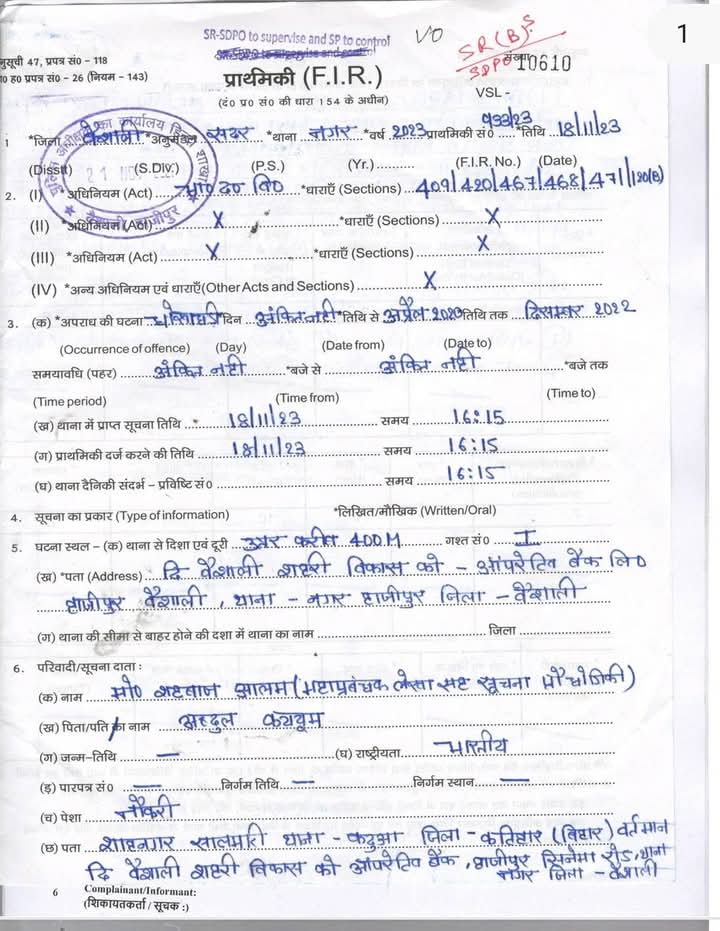 1
SR-SDPO to supervise and SP to control
SR-SDPO to supervise and control
V/O
SR(B)s
SDPO
नुसूची 47, प्रपत्र सं० - 118
संख्या 10610
10 ह० प्रपत्र सं० - 26 (नियम - 143)
प्राथमिकी (F.I.R.)
VSL -
(दं० प्र० सं० की धारा 154 के अधीन)
933/23
1 *जिला वैशाली *अनुमंडल सदर *थाना नगर *वर्ष 2023 प्राथमिकी सं० *तिथि 18/11/23
(Disstt) (S.Div.) (P.S.) (Yr.) (F.I.R. No.) (Date)
2. (I) *अधिनियम (Act) भा० द० वि० *धाराएँ (Sections) 409/420/467/468/471/120(B)
(II) *अधिनियम (Act) X *धाराएँ (Sections) X
(III) *अधिनियम (Act) X *धाराएँ (Sections) X
(IV) *अन्य अधिनियम एवं धाराएँ(Other Acts and Sections) X
3. (क) *अपराध की घटना धोखाधड़ी दिन अंकित नही *तिथि से अप्रैल 2020 तिथि तक दिसम्बर 2022
(Occurrence of offence) (Day) (Date from) (Date to)
समयावधि (पहर) अंकित नही *बजे से अंकित नही *बजे तक
(Time period) (Time from) (Time to)
(ख) थाना में प्राप्त सूचना तिथि 18/11/23 समय 16:15
(ग) प्राथमिकी दर्ज करने की तिथि 18/11/23 समय 16:15
(घ) थाना दैनिकी संदर्भ – प्रविष्टि सं० समय 16:15
4. सूचना का प्रकार (Type of information) *लिखित/मौखिक (Written/Oral)
5. घटना स्थल – (क) थाना से दिशा एवं दूरी उत्तर करीब 400M गश्त सं० I
(ख) *पता (Address) दि वैशाली शहरी विकास को – ऑपरेटिव बैंक लि०
हाजीपुर वैशाली, थाना – नगर हाजीपुर जिला – वैशाली
(ग) थाना की सीमा से बाहर होने की दशा में थाना का नाम जिला
6. परिवादी/सूचना दाता :
(क) नाम मो० शहबाज आलम (महाप्रबंधक लेखा सह सूचना प्रौद्योगिकी)
(ख) पिता/पति का नाम अब्दुल कय्यूम
(ग) जन्म-तिथि — (घ) राष्ट्रीयता भारतीय
(ड़) पारपत्र सं० — निर्गम तिथि — निर्गम स्थान —
(च) पेशा नौकरी
(छ) पता शाहनगर सालमारी थाना – कदुआ जिला – कटिहार (बिहार) वर्तमान
दि वैशाली शहरी विकास को ऑपरेटिव बैंक, हाजीपुर सिनेमा रोड, थाना
नगर जिला – वैशाली
6 Complainant/Informant:
(शिकायतकर्ता / सूचक :)